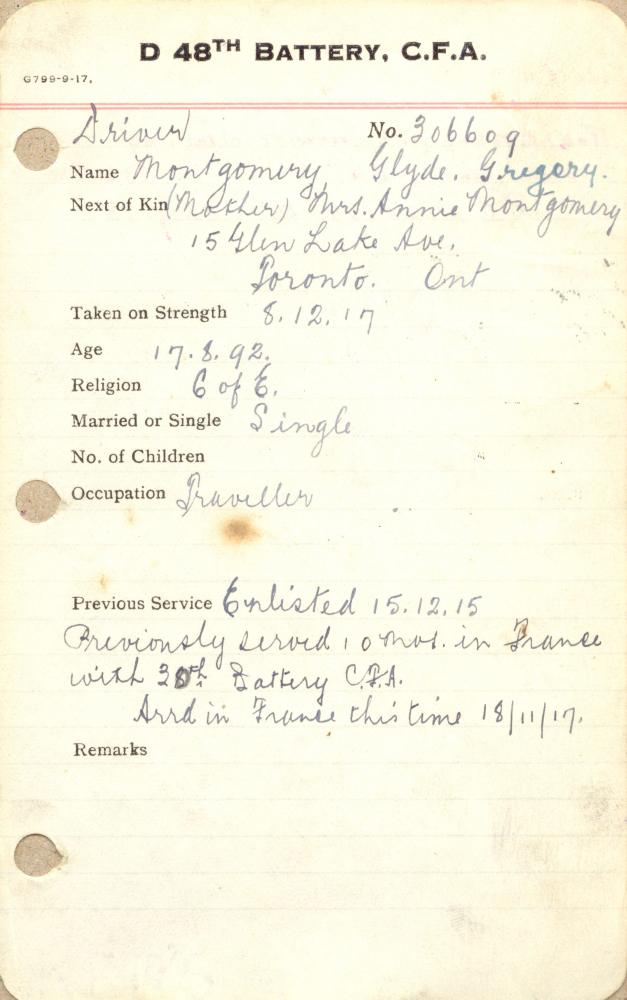 D 48TH BATTERY, C.F.A.
G799-9-17.
Driver No. 306609
Name Montgomery Glyde. Gregory.
Next of Kin (Mother) Mrs. Annie Montgomery
15 Glen Lake Ave.
Toronto. Ont
Taken on Strength 8.12.17
Age 17.8.92.
Religion C of E.
Married or Single Single
No. of Children
Occupation Traveller
Previous Service Enlisted 15.12.15
Previously served 10 mos. in France
with Battery C.F.A.
Arrd in France this time 18/11/17.
Remarks